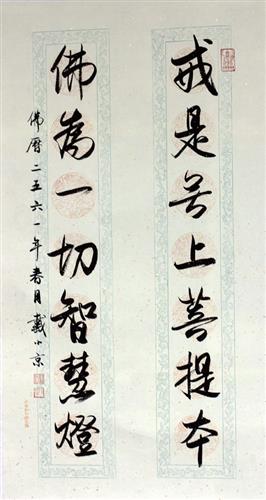 戒是无上菩提本
佛为一切智慧灯
佛历二五六一年春月戴小京